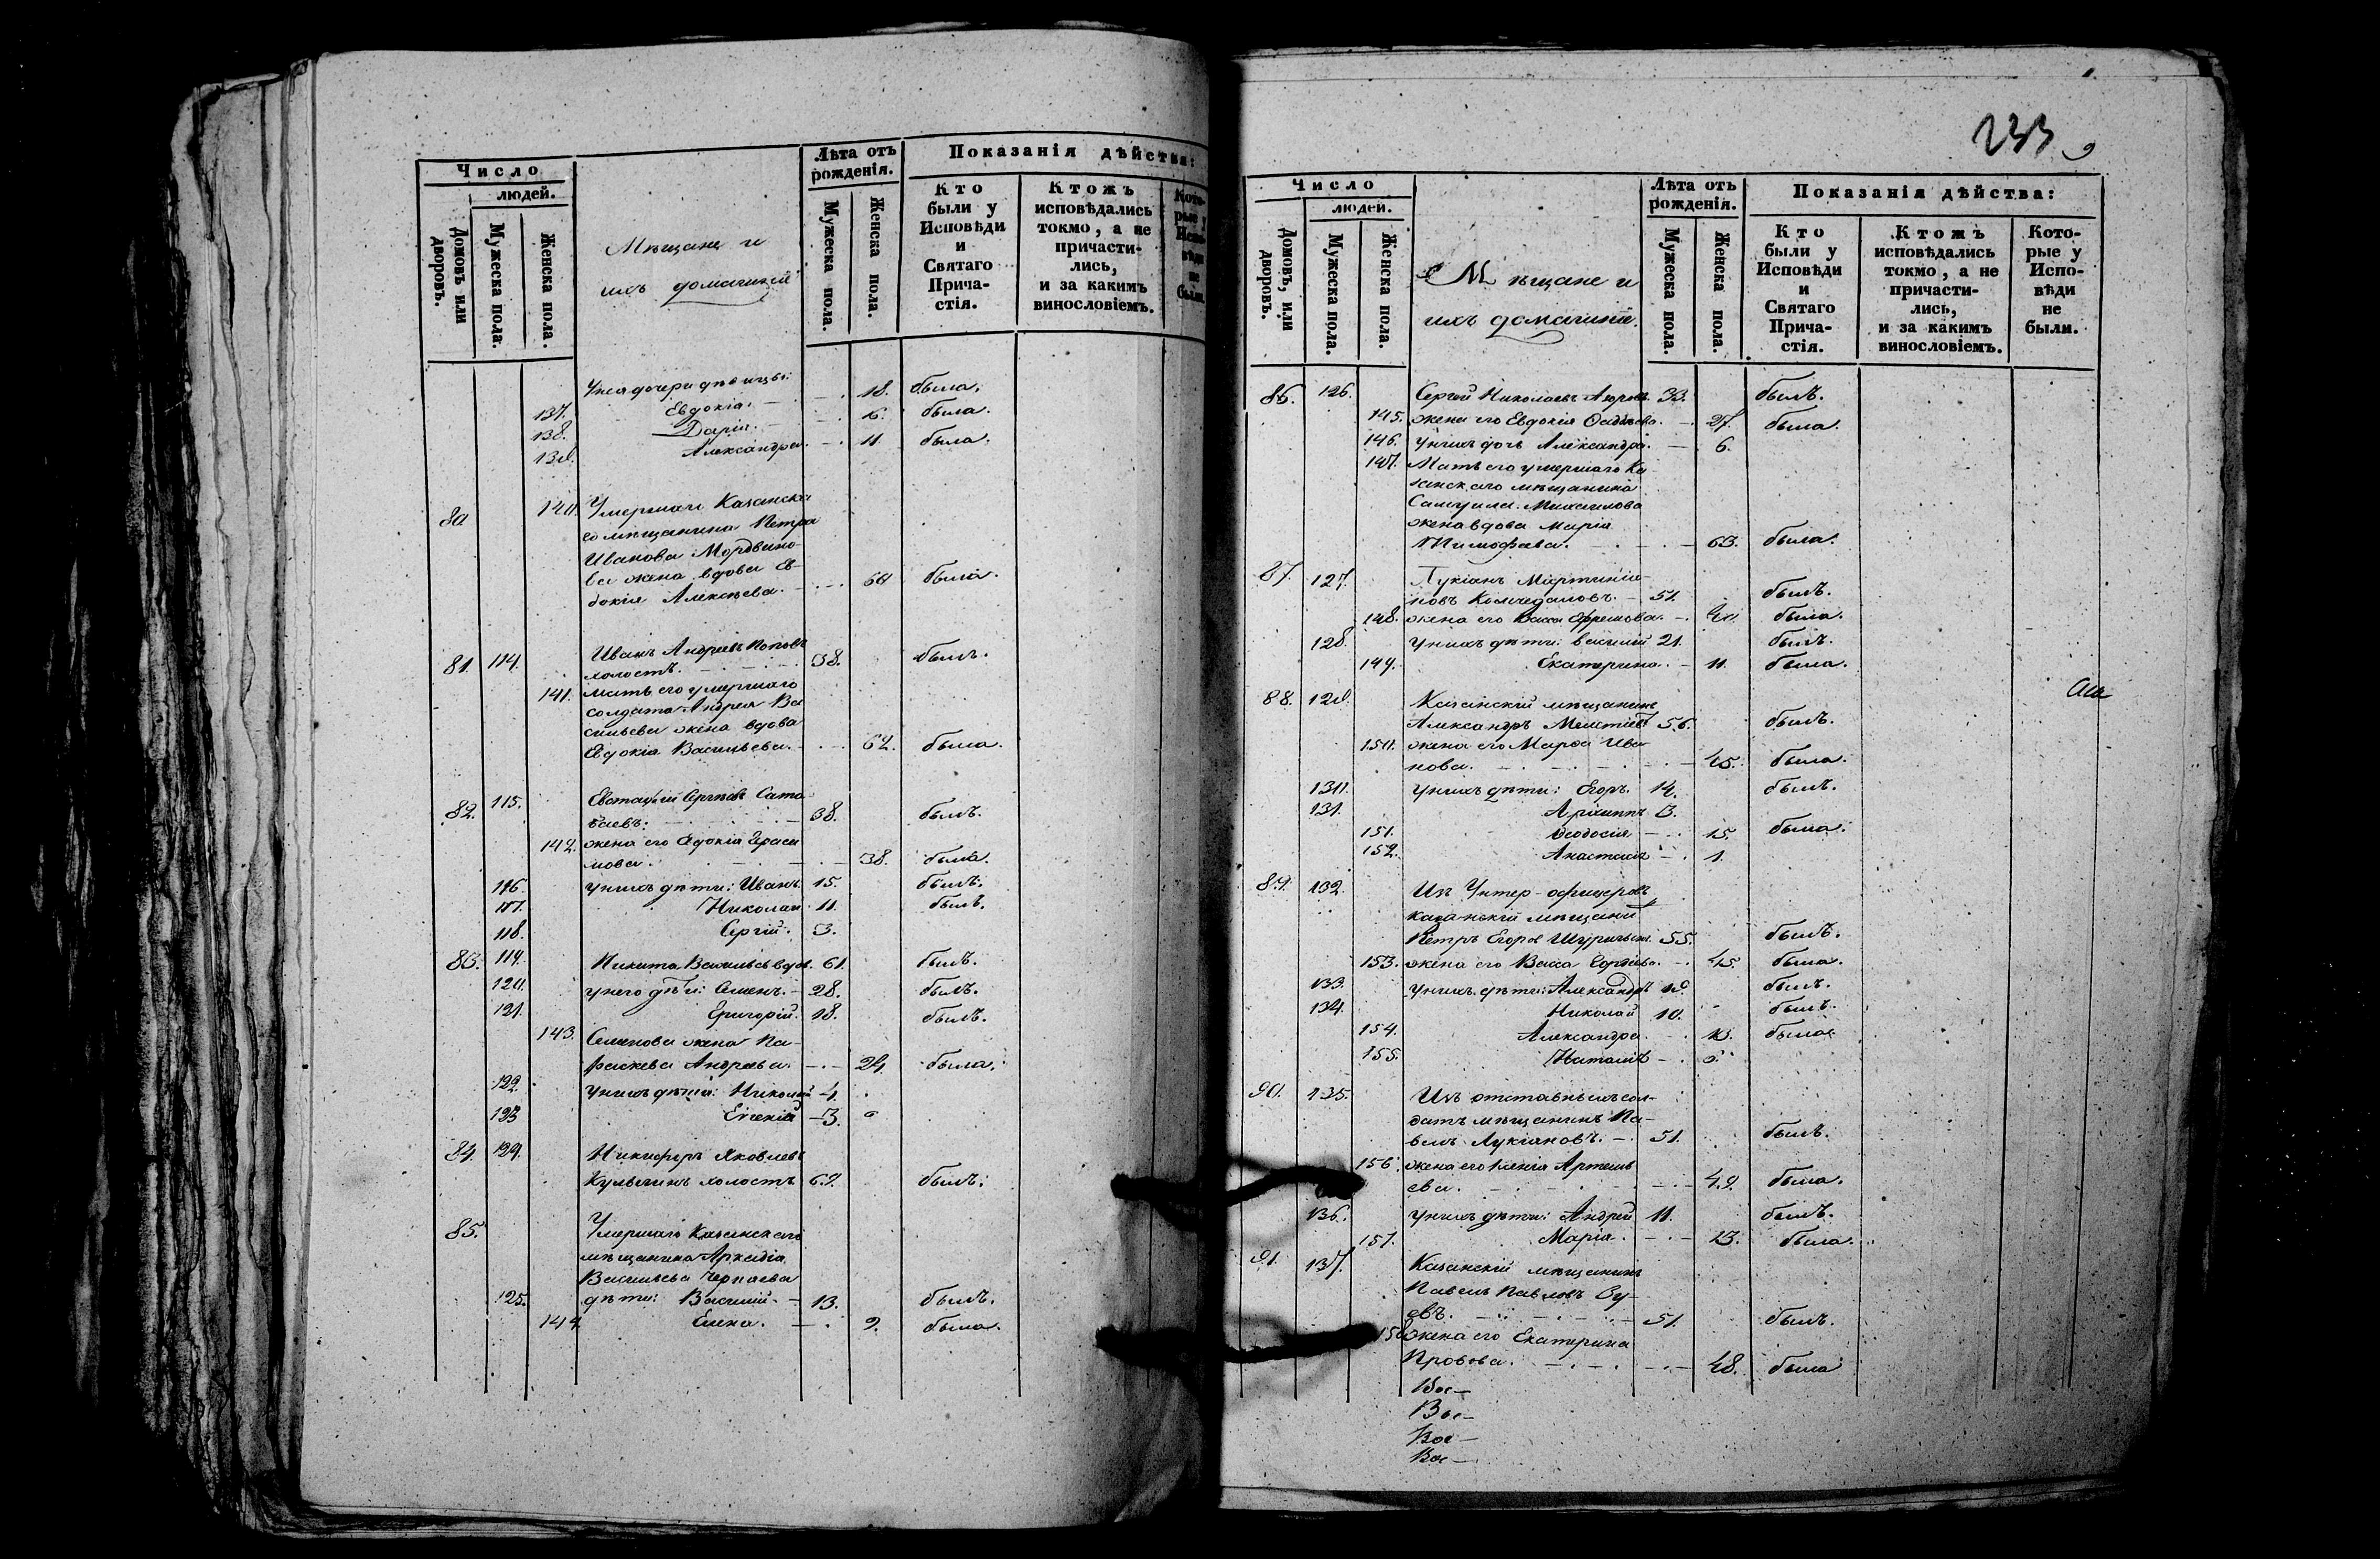 Число
людей.
Домовъ или дворовъ.
Мужеска пола.
Женска пола.
Мѣщане и
ихъ домашніе
Лѣта отъ рожденія.
Мужеска пола.
Женска пола.
Показанія дѣйства:
Кто были у Исповѣди и Святаго Прича-стія.
Ктожъ исповѣдались токмо, а не причасти-лись, и за какимъ винословіемъ.
Кото-рые у Испо-вѣди не были.
У нея дочери дѣвицы:
137. Евдокія. 18. была.
138. Дарія. была.
139. Александра. 11. была.
80 140. Умершаго Казанска
го мѣщанина Петра
Иванова Мордвино-
ва жена вдова Ев-
докія Алексѣева. 60 была.
81. 114. Иванъ Андреевъ Поповъ
холостъ. 38. былъ.
141. Мать его умершаго
солдата Андрея Ва
сильева жена вдова
Евдокія Васильева. 62. была.
82. 115. Евстафій Сергѣевъ
38. былъ.
142. жена его Евдокія Гераси
мова. 38. была.
116. У нихъ дѣти: Иванъ. 15. былъ.
117. Николай 11. былъ.
118. Сергій. 3.
83. 119. Никита Васильевъ вдов. 61. былъ.
120. У него дѣти: Семенъ. 28. былъ.
121. Григорій. 18. былъ.
143. Семенова жена Па-
раскева Андреева. 24. была.
122. У нихъ дѣти: Николай 4.
123 Евгеній 3.
84. 124. Никифоръ Яковлевъ
холостъ 62. былъ.
85. Умершаго Казанскаго
мѣщанина Аркадія
Васильева Черпаева
125. дѣти: Василій. 13. былъ.
144. Елена. 9. была.
233
Число
людей.
Домовъ, или дворовъ.
Мужеска пола.
Женска пола.
Мѣщане и
ихъ домашніе.
Лѣта отъ рожденія.
Мужеска пола.
Женска пола.
Показанія дѣйства:
Кто были у Исповѣди и Святаго Прича-стія.
Ктожъ исповѣдались токмо, а не причасти-лись, и за какимъ винословіемъ.
Кото-рые у Испо-вѣди не были.
86. 126. Сергій Николаевъ 33. былъ.
145. жена его Евдокія 27. была.
146. У нихъ дочь Александра. 6.
147. Мать его умершаго Ка-
занскаго мѣщанина
Самуила Михайлова
жена вдова Марія
Тимофѣева. 63. была.
87. 127. Лукіанъ Мартиніа-
новъ 51. былъ.
148. жена его Васса Ефремова. была.
128. У нихъ дѣти: Василій 21. былъ.
149. Екатерина. 11. была.
88. 129. Казанскій мѣщанинъ
Александръ 56. былъ.
150. жена его Марѳа Ива
нова. 45. была.
130. У нихъ дѣти: Егоръ. 14. былъ.
131. Архиппъ 3.
151. Ѳеодосія 15. была.
152. Анастасія 1.
89. 132. Изъ Унтер-офицеровъ
казанскій мѣщанинъ
Петръ Егоровъ 55. былъ.
153. жена его Васса 45. была.
133. У нихъ дѣти: Александръ 19. былъ.
134. Николай 10. былъ.
154. Александра. 13. была
155. Наталія
90. 135. Изъ отставныхъ сол-
датъ мѣщанинъ Па-
велъ Лукіановъ. 51. былъ.
156. жена его Ксенія Артемь
ева. 49. была.
136. У нихъ дѣти: Андрей 11. былъ.
157. Марія. 23. была.
91. 137. Казанскій мѣщанинъ
Павелъ Павловъ Зу-
евъ. 51. былъ.
158. жена его Екатерина
Провова. 48. была